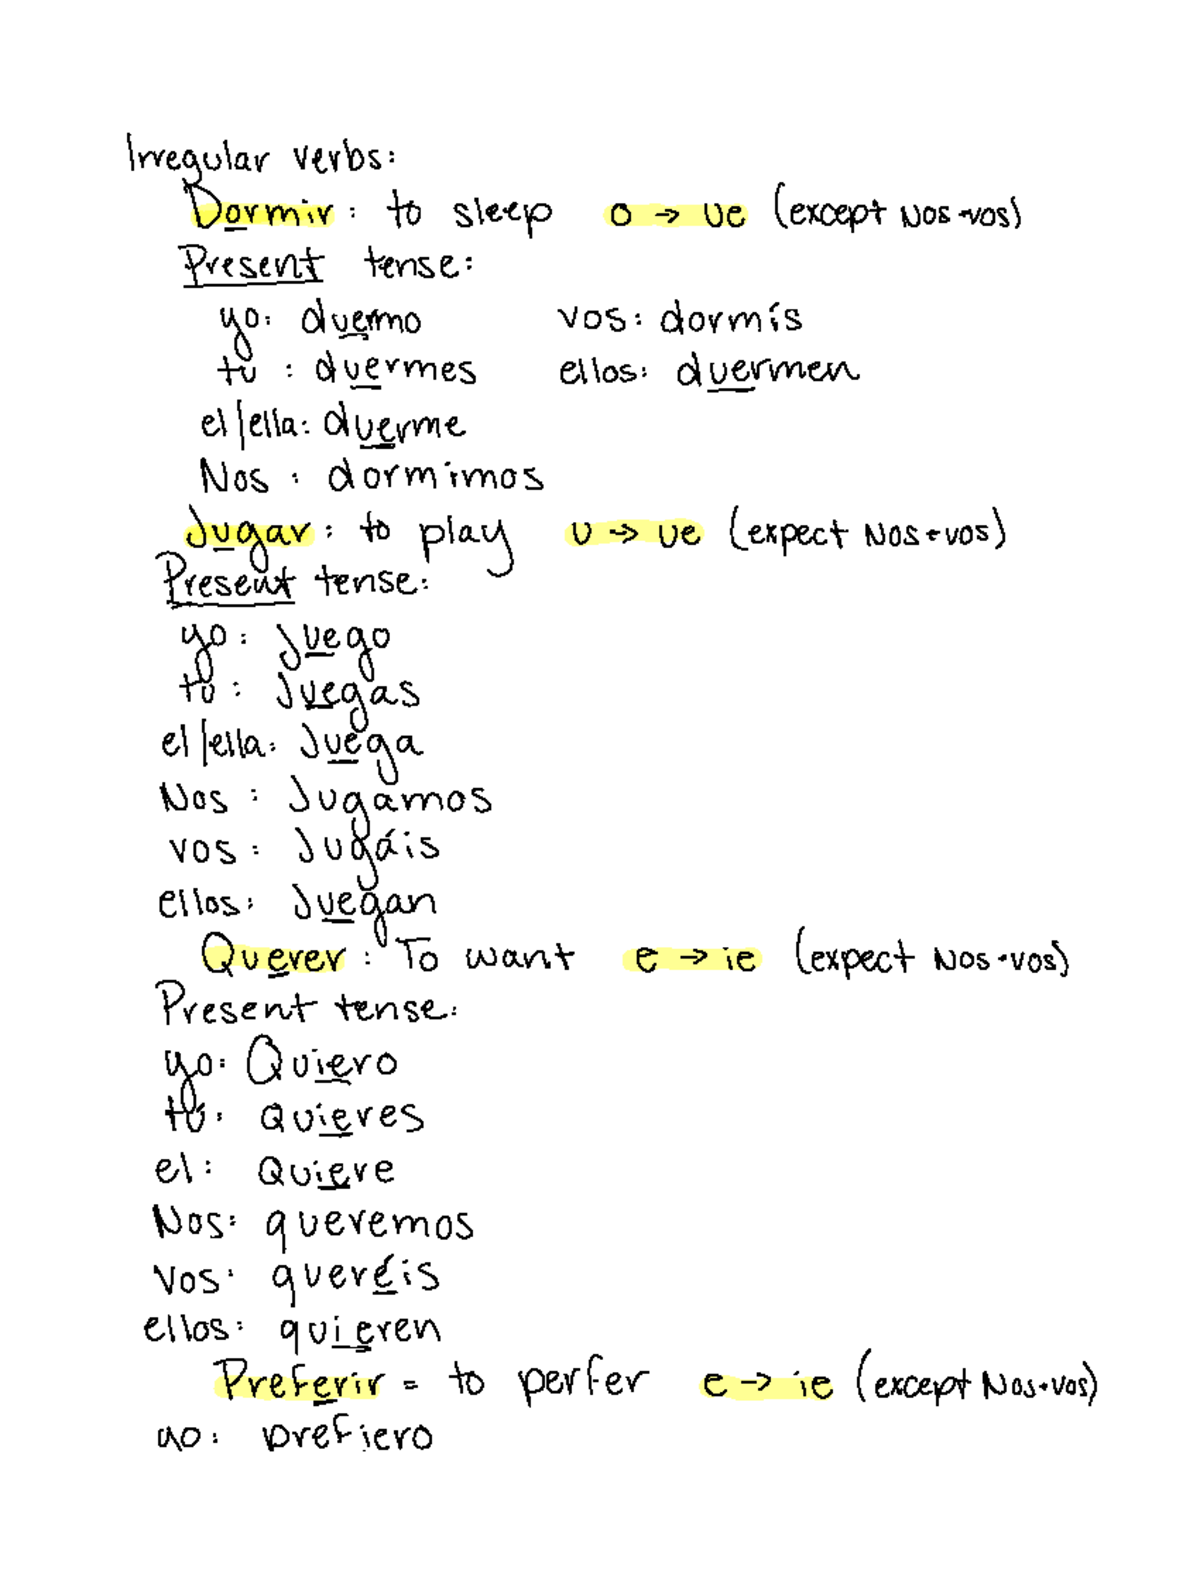 Irregular verbs:
Dormir: to sleep o → ue (except Nos + vos)
Present tense:
yo: duermo vos: dormís
tú: duermes ellos: duermen
el/ella: duerme
Nos: dormimos
Jugar: to play u → ue (expect Nos + vos)
Present tense:
yo: Juego
tú: Juegas
el/ella: Juega
Nos: Jugamos
vos: Jugáis
ellos: Juegan
Querer: To want e → ie (expect Nos + vos)
Present tense:
yo: Quiero
tú: Quieres
el: Quiere
Nos: queremos
Vos: queréis
ellos: quieren
Preferir = to perfer e → ie (except Nos + vos)
yo: prefiero